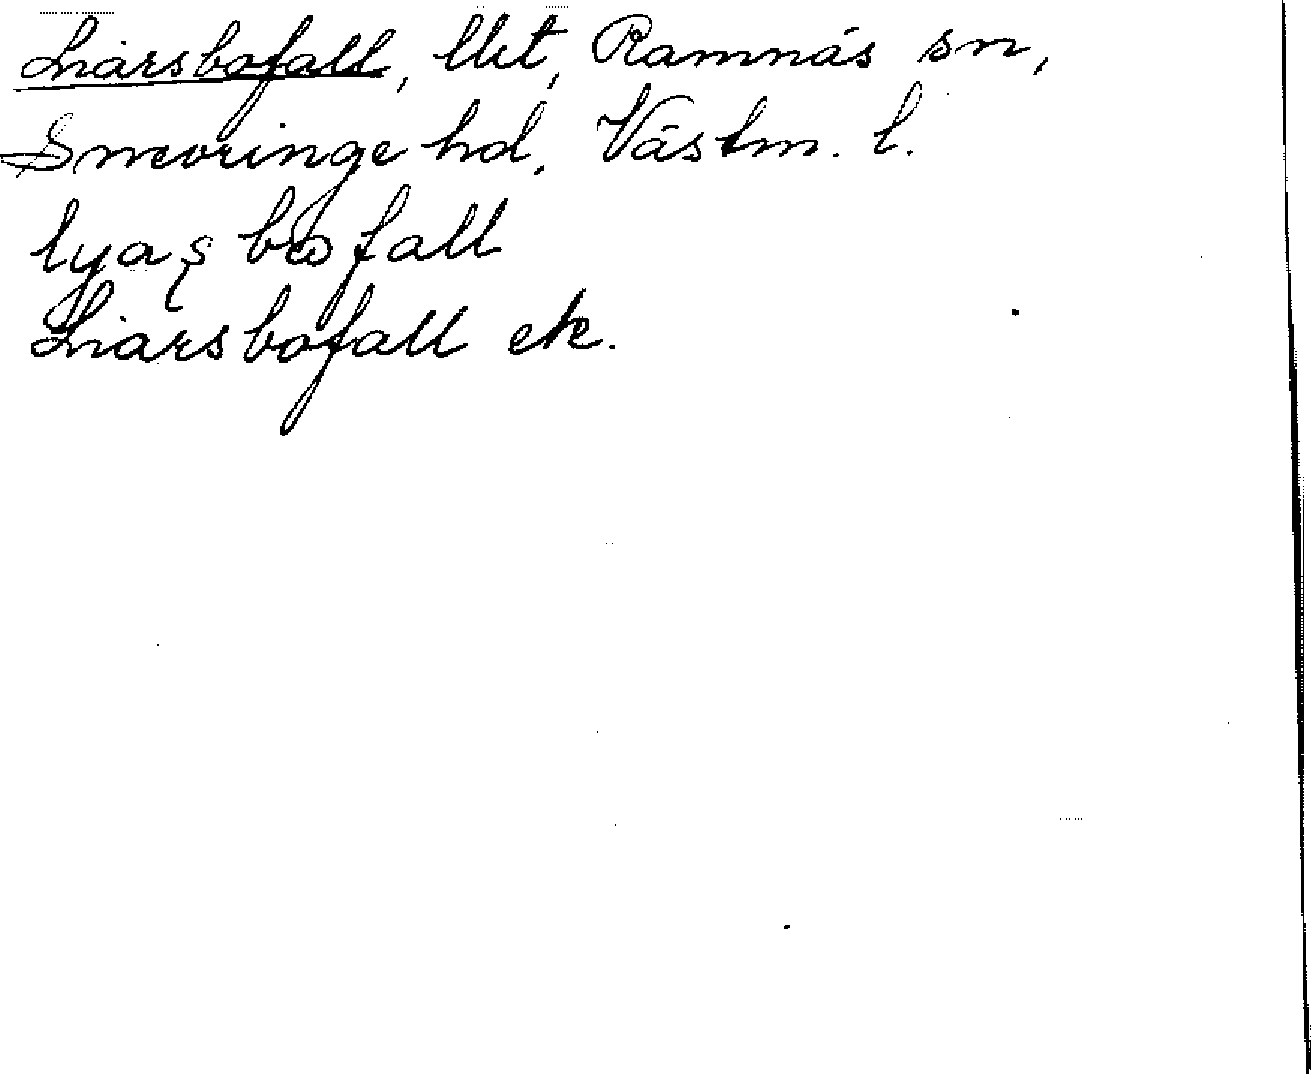 Liarsbofall, lht, Ramnäs sn,
Snevringe hd, Västm. l.
lyaʂ bωfall
Liarsbofall ek.